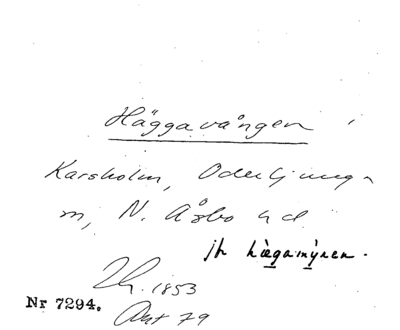 Häggavången
Karsholm, Oderljunga
m, N. Åsbo hd.
jh hægamýren.
Lh. 1853
Nr 7294.
Akt 79